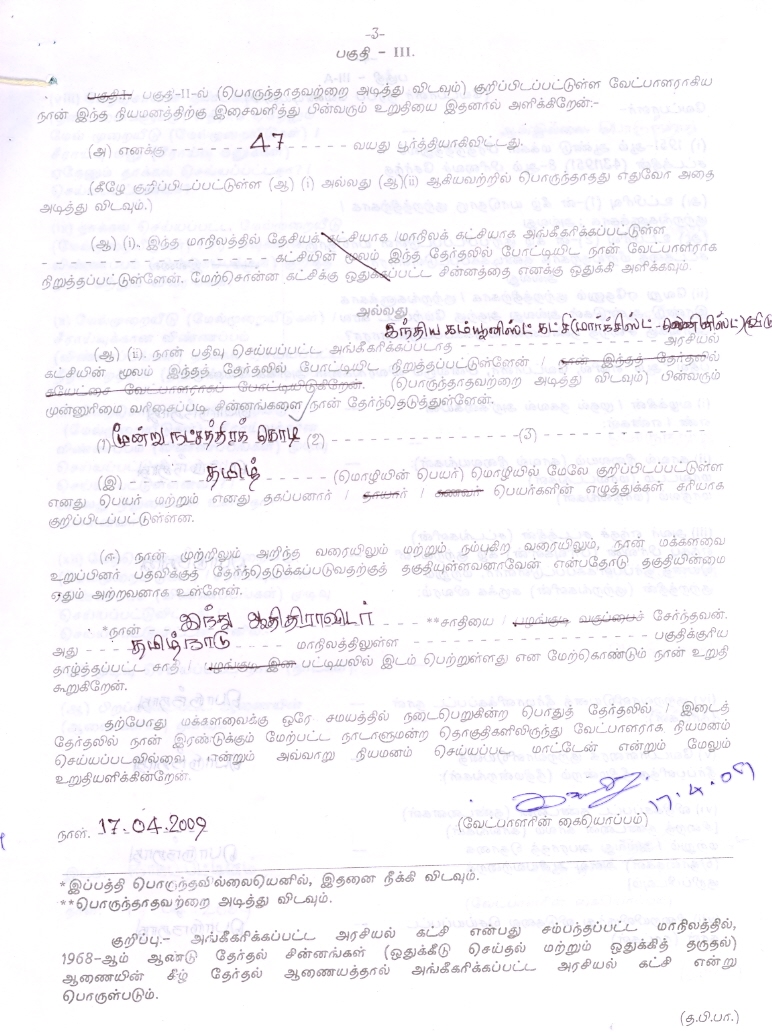 -3-
பகுதி - III.
பகுதி-I. பகுதி-II-ல் (பொருந்தாதவற்றை அடித்து விடவும்) குறிப்பிடப்பட்டுள்ள வேட்பாளராகிய
நான் இந்த நியமனத்திற்கு இசைவளித்து பின்வரும் உறுதியை இதனால் அளிக்கிறேன்:-
(அ) எனக்கு - - - - - - - 47 - - - - - வயது பூர்த்தியாகிவிட்டது.
(கீழே குறிப்பிடப்பட்டுள்ள (ஆ) (i) அல்லது (ஆ)(ii) ஆகியவற்றில் பொருந்தாதது எதுவோ அதை
அடித்து விடவும்.)
(ஆ) (i). இந்த மாநிலத்தில் தேசியக் கட்சியாக /மாநிலக் கட்சியாக அங்கீகரிக்கப்பட்டுள்ள
- - - - - - - - - - - - - - - - - - கட்சியின் மூலம் இந்த தேர்தலில் போட்டியிட நான் வேட்பாளராக
நிறுத்தப்பட்டுள்ளேன். மேற்சொன்ன கட்சிக்கு ஒதுக்கப்பட்ட சின்னத்தை எனக்கு ஒதுக்கி அளிக்கவும்.
அல்லது
இந்திய கம்யூனிஸ்ட் கட்சி(மார்க்சிஸ்ட் - லெனினிஸ்ட்)
(ஆ) (ii). நான் பதிவு செய்யப்பட்ட அங்கீகரிக்கப்படாத - - - - - - - - - - - - - - - - அரசியல்
கட்சியின் மூலம் இந்தத் தேர்தலில் போட்டியிட நிறுத்தப்பட்டுள்ளேன் / நான் இந்தத் தேர்தலில்
சுயேட்சை வேட்பாளராகப் போட்டியிடுகிறேன். (பொருந்தாதவற்றை அடித்து விடவும்) பின்வரும்
முன்னுரிமை வரிசைப்படி சின்னங்களை நான் தேர்ந்தெடுத்துள்ளேன்.
(1) மூன்று நட்சத்திரக் கொடி (2) - - - - - - - - - - - - - - - -(3) - - - - - - - - - - - - - - -
(இ) - - - - - - தமிழ் - - - - - (மொழியின் பெயர்) மொழியில் மேலே குறிப்பிடப்பட்டுள்ள
எனது பெயர் மற்றும் எனது தகப்பனார் / தாயார் / கணவர் பெயர்களின் எழுத்துக்கள் சரியாக
குறிப்பிடப்பட்டுள்ளன.
(ஈ) நான் முற்றிலும் அறிந்த வரையிலும் மற்றும் நம்புகிற வரையிலும், நான் மக்களவை
உறுப்பினர் பதவிக்குத் தேர்ந்தெடுக்கப்படுவதற்குத் தகுதியுள்ளவனாவேன் என்பதோடு தகுதியின்மை
ஏதும் அற்றவனாக உள்ளேன்.
*நான் - - - - இந்து ஆதிதிராவிடர் - - - - **சாதியை / பழங்குடி வகுப்பைச் சேர்ந்தவன்.
அது - - - - தமிழ்நாடு - - - - மாநிலத்திலுள்ள - - - - - - - - - - - - - - - - - - பகுதிக்குரிய
தாழ்த்தப்பட்ட சாதி / பழங்குடி இன பட்டியலில் இடம் பெற்றுள்ளது என மேற்கொண்டும் நான் உறுதி
கூறுகிறேன்.
தற்போது மக்களவைக்கு ஒரே சமயத்தில் நடைபெறுகின்ற பொதுத் தேர்தலில் / இடைத்
தேர்தலில் நான் இரண்டுக்கும் மேற்பட்ட நாடாளுமன்ற தொகுதிகளிலிருந்து வேட்பாளராக நியமனம்
செய்யப்படவில்லை என்றும் அவ்வாறு நியமனம் செய்யப்பட மாட்டேன் என்றும் மேலும்
உறுதியளிக்கின்றேன்.
17.4.09
நாள். 17.04.2009
(வேட்பாளரின் கையொப்பம்)
*இப்பத்தி பொருந்தவில்லையெனில், இதனை நீக்கி விடவும்.
**பொருந்தாதவற்றை அடித்து விடவும்.
குறிப்பு.- அங்கீகரிக்கப்பட்ட அரசியல் கட்சி என்பது சம்பந்தப்பட்ட மாநிலத்தில்,
1968-ஆம் ஆண்டு தேர்தல் சின்னங்கள் (ஒதுக்கீடு செய்தல் மற்றும் ஒதுக்கித் தருதல்)
ஆணையின் கீழ் தேர்தல் ஆணையத்தால் அங்கீகரிக்கப்பட்ட அரசியல் கட்சி என்று
பொருள்படும்.
(த.பி.பா.)